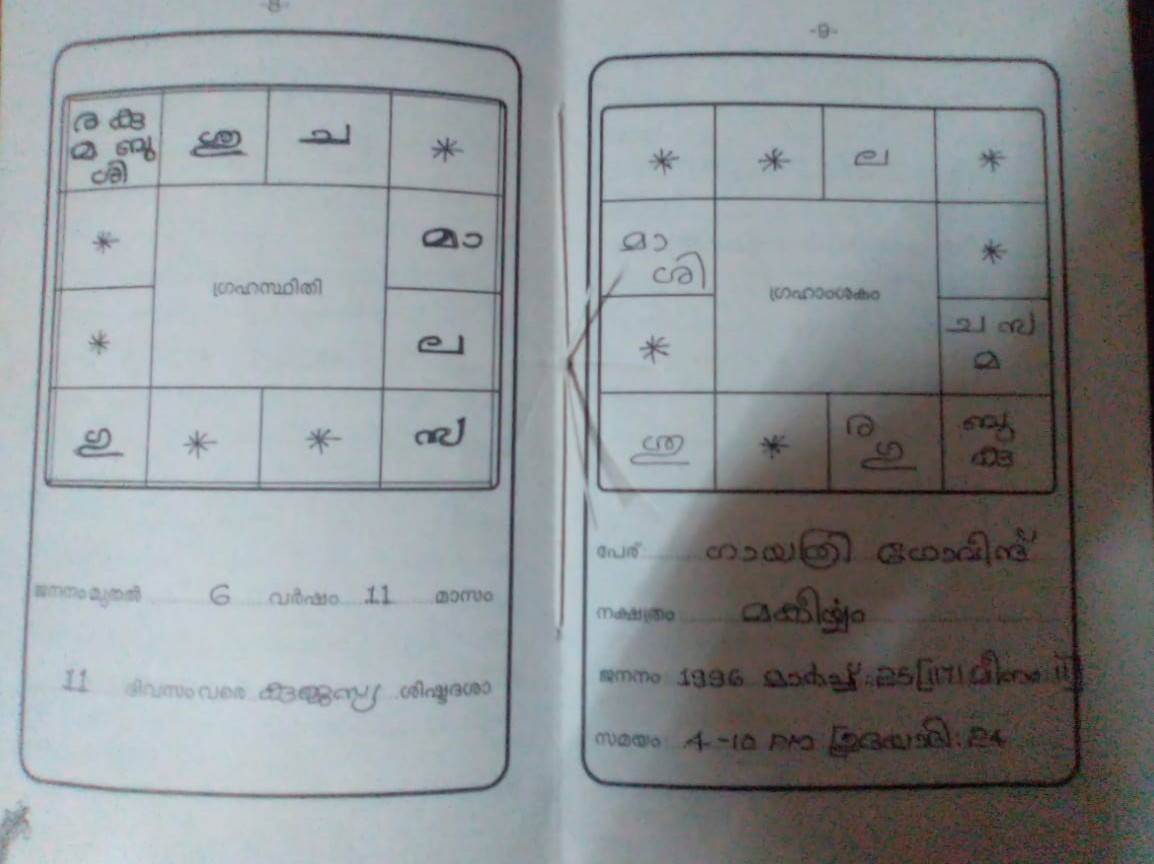 -8-
ര കു
മ ബു
ശി
ശു
ച
*
*
മാ
ഗ്രഹസ്ഥിതി
*
ല
ഗു
*
*
സ്പ
ജനനംമുതൽ 6 വർഷം 11 മാസം
11 ദിവസംവരെ കുജസ്യ ശിഷ്ടദശാ
-9-
*
*
ല
*
മാ
ശി
*
ഗ്രഹാംശകം
*
ച സ്പ
മ
ശു
*
ര
ഗു
ബു
കു
പേര് ഗായത്രി ഗോവിന്ദ്
നക്ഷത്രം മകീര്യം
ജനനം 1996 മാർച്ച് 25 [1171 മീനം 11]
സമയം 4-10 PM [ഉദയാദി: 24